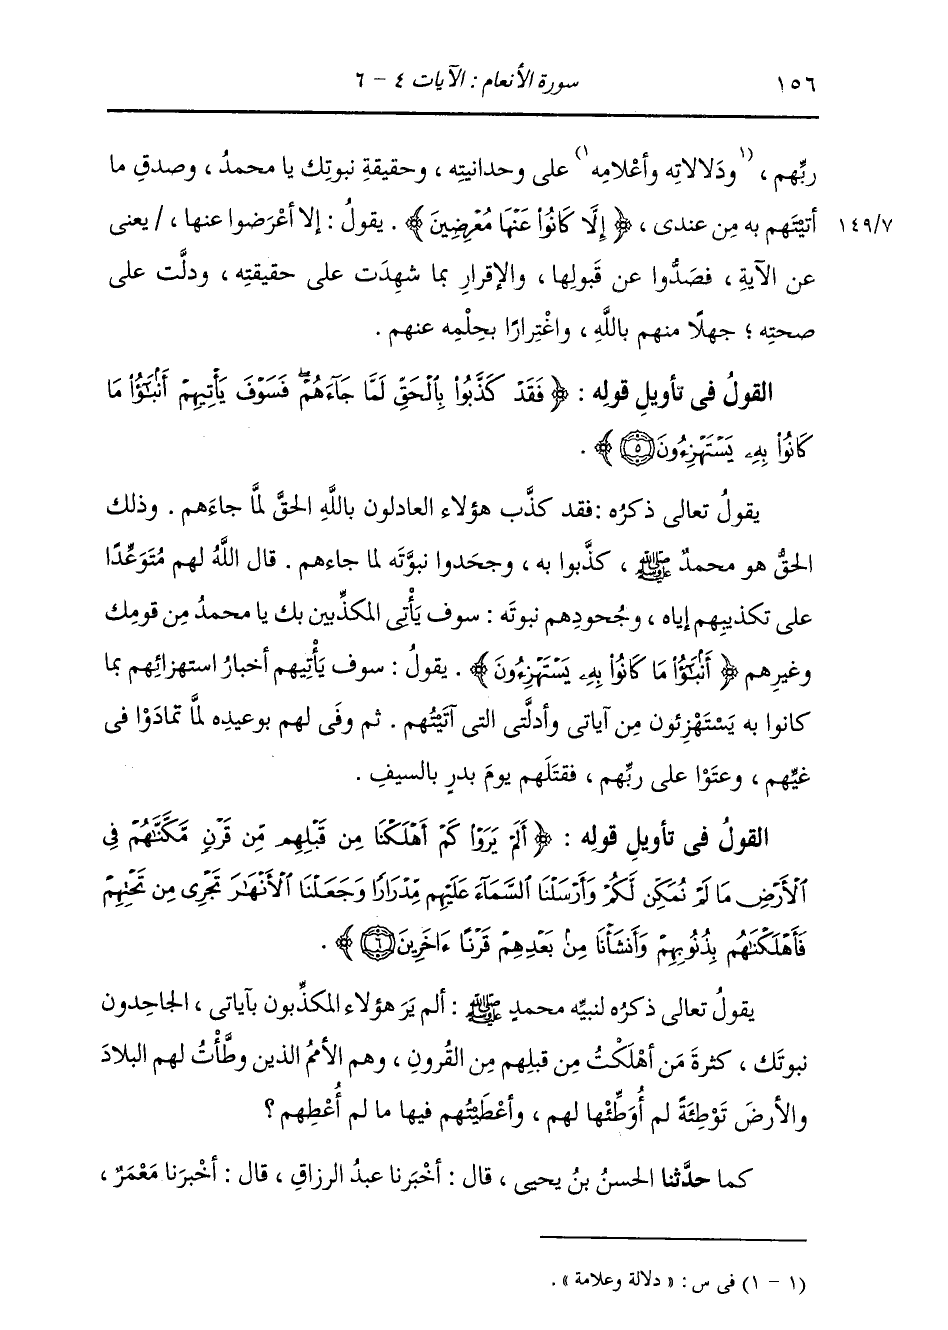 ١٥٦ سورة الأنعام : الآيات ٤ - ٦
ربِّهم ، (١ودَلالاتِه وأعْلامِه١) على وحدانيتِه ، وحقيقةِ نبوتِك يا محمدُ ، وصدقِ ما
١٤٩/٧ أتيْتَهم به مِن عندى ، ﴿ إِلَّا كَانُوا۟ عَنْهَا مُعْرِضِينَ ﴾ . يقولُ : إلا أعْرَضوا عنها ، / يعنى
عن الآيةِ ، فصَدُّوا عن قَبولِها ، والإقرارِ بما شهِدَت على حقيقتِه ، ودلَّت على
صحتِه ؛ جهلًا منهم باللَّهِ ، واغْتِرارًا بحِلْمِه عنهم .
القولُ فى تأويلِ قولِه : ﴿ فَقَدْ كَذَّبُوا۟ بِٱلْحَقِّ لَمَّا جَآءَهُمْ ۖ فَسَوْفَ يَأْتِيهِمْ أَنۢبَـٰٓؤُا۟ مَا
كَانُوا۟ بِهِۦ يَسْتَهْزِءُونَ ٥ ﴾ .
يقولُ تعالى ذكرُه : فقد كذَّب هؤلاء العادلون باللَّهِ الحقَّ لمَّا جاءَهم . وذلك
الحقُّ هو محمدٌ ﷺ ، كذَّبوا به ، وجحَدوا نبوَّتَه لما جاءهم . قال اللَّهُ لهم مُتَوَعِّدًا
على تكذيبِهم إياه ، وجُحودِهم نبوتَه : سوف يَأْتِى المكذِّبين بك يا محمدُ مِن قومِك
وغيرِهم ﴿ أَنۢبَـٰٓؤُا۟ مَا كَانُوا۟ بِهِۦ يَسْتَهْزِءُونَ ﴾ . يقولُ : سوف يَأْتيهم أخبارُ استهزائِهم بما
كانوا به يَسْتَهْزِئون مِن آياتى وأدلَّتى التى آتَيْتُهم . ثم وفَى لهم بوعيدِه لمَّا تمادَوْا فى
غيِّهم ، وعتَوْا على ربِّهم ، فقتَلَهم يومَ بدرٍ بالسيفِ .
القولُ فى تأويلِ قولِه : ﴿ أَلَمْ يَرَوْا۟ كَمْ أَهْلَكْنَا مِن قَبْلِهِم مِّن قَرْنٍ مَّكَّنَّـٰهُمْ فِى
ٱلْأَرْضِ مَا لَمْ نُمَكِّن لَّكُمْ وَأَرْسَلْنَا ٱلسَّمَآءَ عَلَيْهِم مِّدْرَارًا وَجَعَلْنَا ٱلْأَنْهَـٰرَ تَجْرِى مِن تَحْتِهِمْ
فَأَهْلَكْنَـٰهُم بِذُنُوبِهِمْ وَأَنشَأْنَا مِنۢ بَعْدِهِمْ قَرْنًا ءَاخَرِينَ ٦ ﴾ .
يقولُ تعالى ذكرُه لنبيِّه محمدٍ ﷺ : ألم يَرَ هؤلاء المكذِّبون بآياتى ، الجاحِدون
نبوتَك ، كثرةَ مَن أهْلَكْتُ مِن قبلِهم مِن القُرونِ ، وهم الأممُ الذين وطَّأْتُ لهم البلادَ
والأرضَ تَوْطِئَةً لم أُوَطِّئْها لهم ، وأعْطَيْتُهم فيها ما لم أُعْطِهم ؟
كما حدَّثنا الحسنُ بنُ يحيى ، قال : أخْبَرنا عبدُ الرزاقِ ، قال : أخْبرَنا مَعْمَرٌ ،
(١ - ١) فى س : « دلالة وعلامة » .